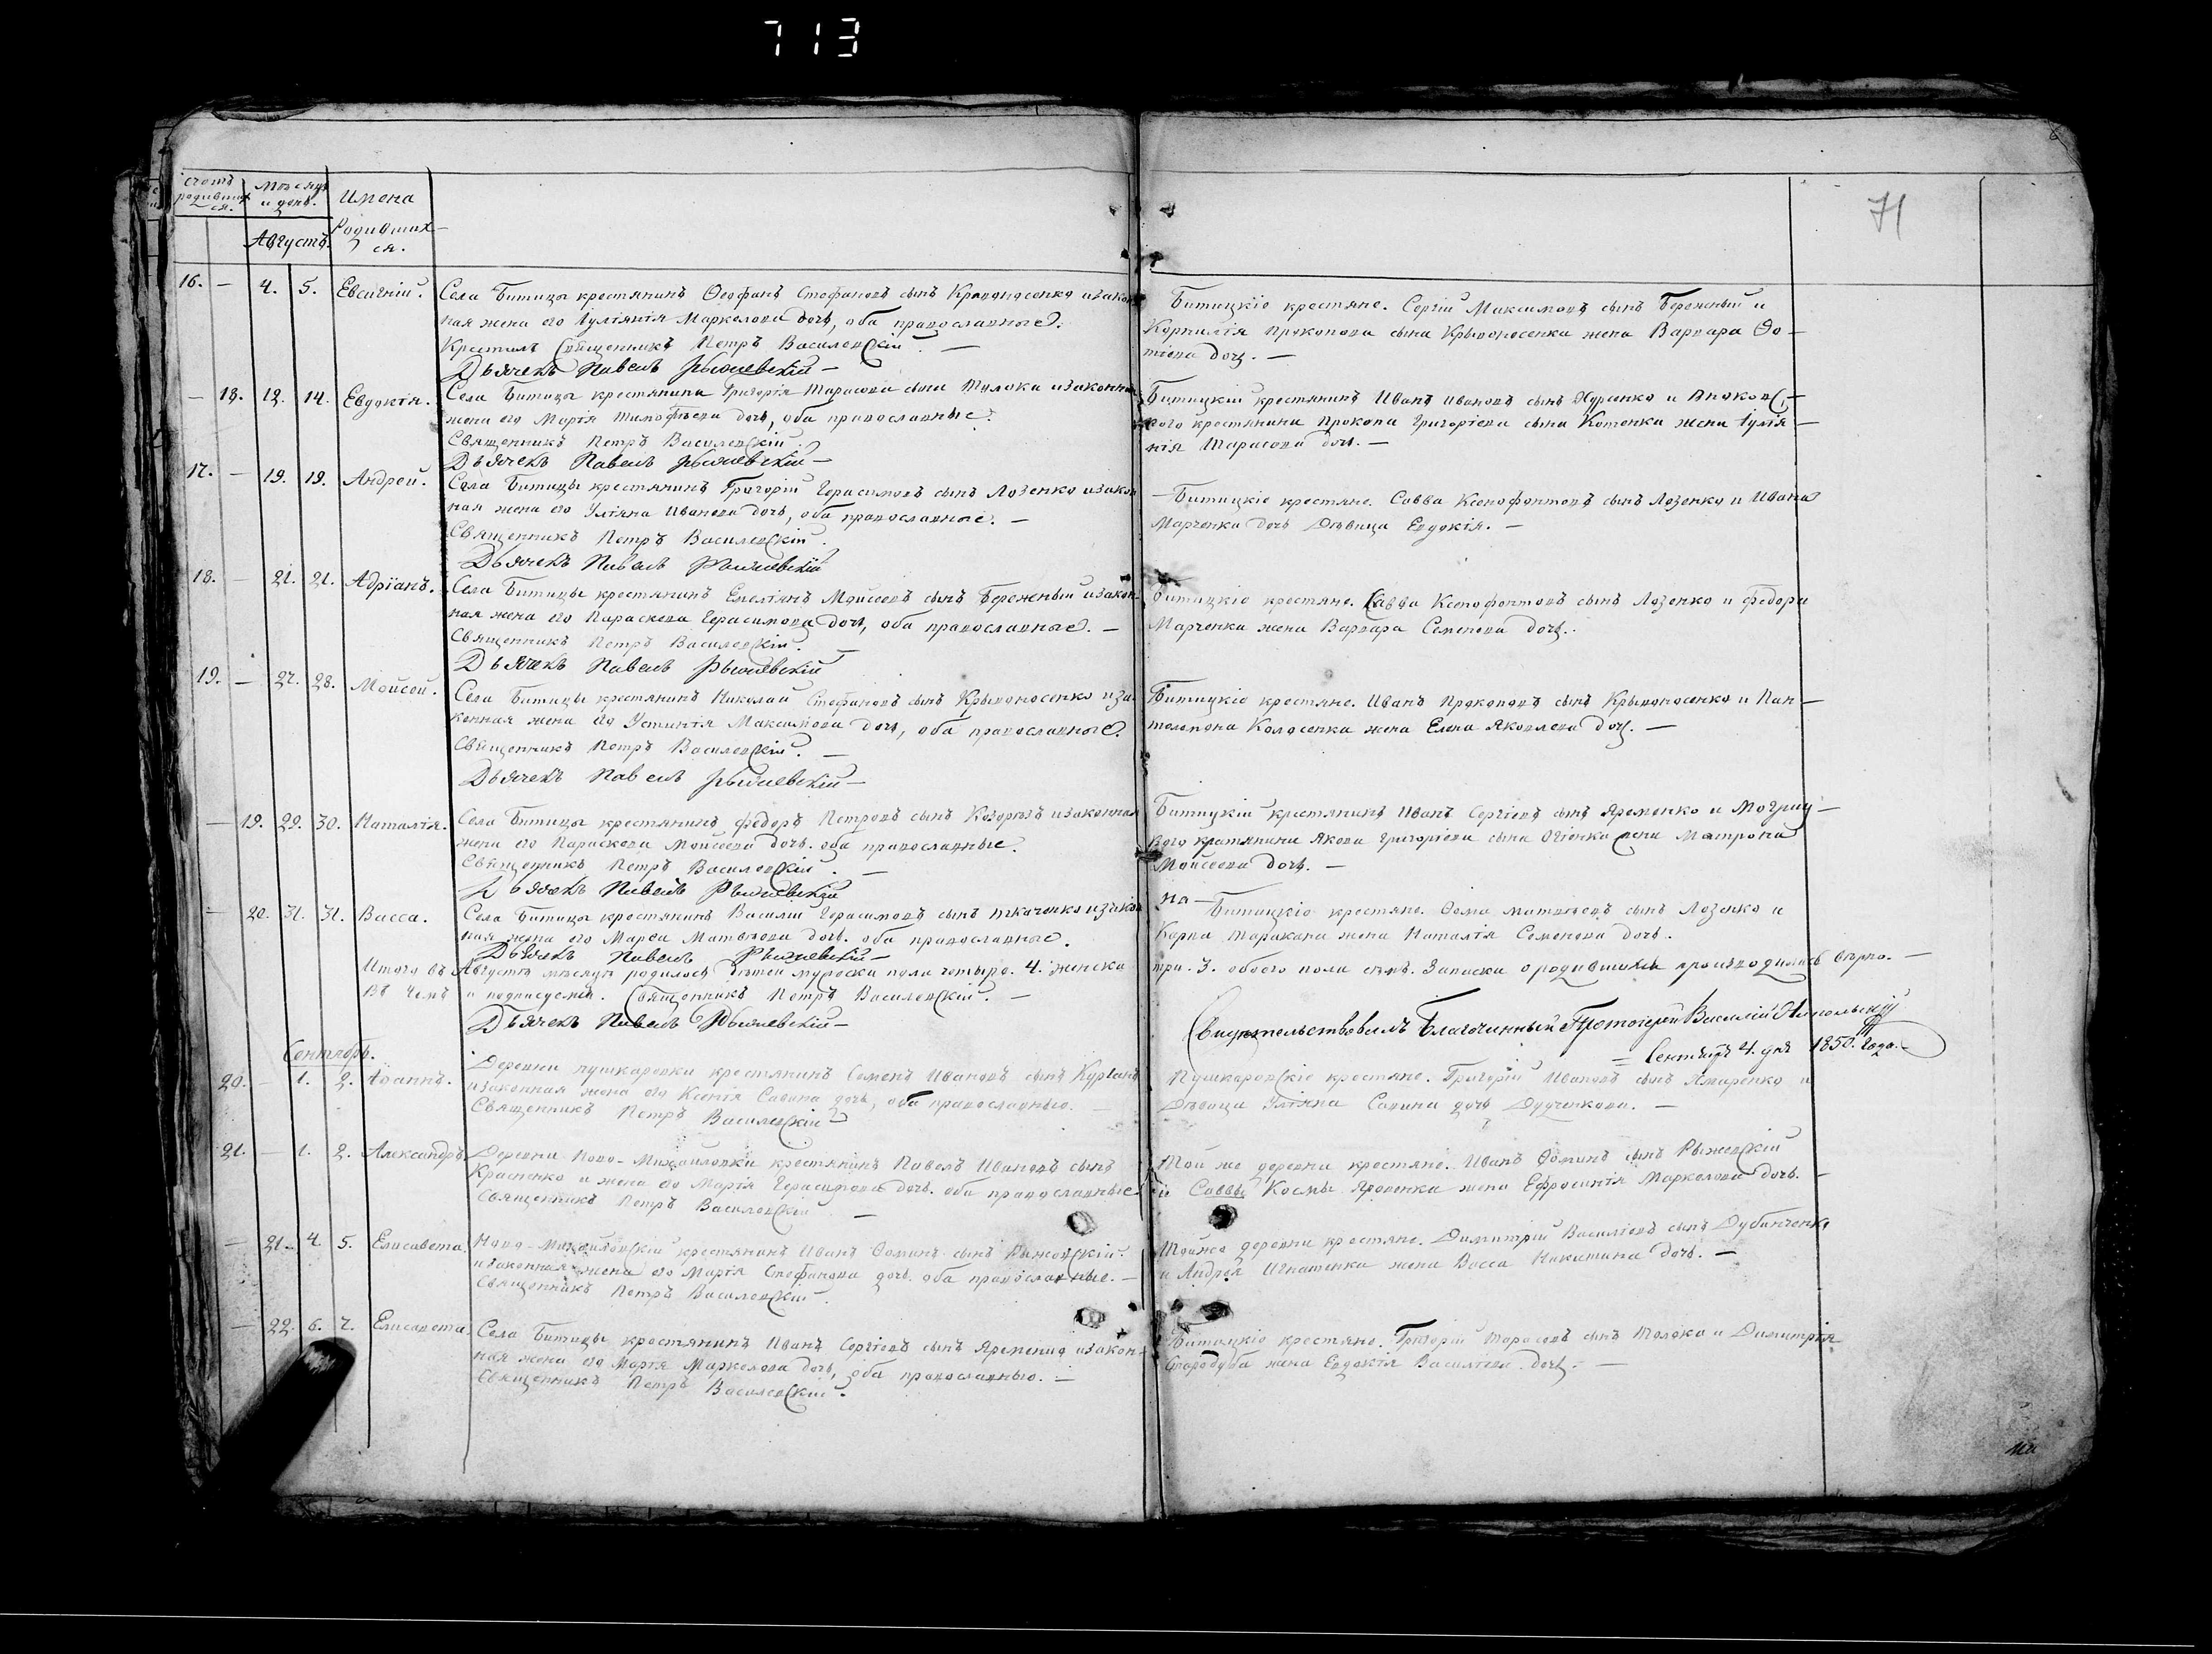 713
71
счетъ родившихся.
Мѣсяцъ и день.
Августъ.
Имена Родившихся.
16. — 4. 5. Евсигній. Села Битицы крестянинъ Ѳеофанъ Стефановъ сынъ Кравоносенко изакон
ная жена его Іуліянія Маркелова дочь, оба православные.
Крестилъ Священникъ Петръ Василевскій. —
Дьячекъ Павелъ Рыжевскій —
Битицкіе крестяне. Сергій Максимовъ сынъ Бережный и
Корнилія Прокопова сына Крывоносенка жена Варвара Фо—
тіева дочь. —
— 18. 12. 14. Евдокія. Села Битицы крестянина Григорія Тарасова сына Толока изаконна
жена его Марія Тимофѣева дочь, оба православные.
Священникъ Петръ Василевскій.
Дьячекъ Павелъ Рыжевскій —
Битицкій крестянинъ Иванъ Ивановъ сынъ
кого крестянина Прокопа Григоріева сына Котенка жена Іулія—
нія Тарасова дочь. —
17. — 19. 19. Андрей. Села Битицы крестянинъ Григорій Герасимовъ сынъ Лозенко изакон
ная жена его Уліяна Иванова дочь, оба православные. —
Священникъ Петръ Василевскій.
Дьячекъ Павелъ Рыжевскій
— Битицкіе крестяне. Савва Ксенофонтовъ сынъ Лозенко и Ивана
Марченка дочь Дѣвица Евдокія. —
18. — 21. 21. Адріанъ. Села Битицы крестянинъ Емеліянъ Мойсеевъ сынъ Бережный изакон—
ная жена его Параскева Герасимова дочь, оба православные. —
Священникъ Петръ Василевскій.
Дьячекъ Павелъ Рыжевскій
Битицкіе крестяне. Савва Ксенофонтовъ сынъ Лозенко и Федора
Марченка жена Варвара Семенова дочь.
19. — 27. 28. Мойсей. Села Битицы крестянинъ Николай Стефановъ сынъ Крывоносенко иза
конная жена его Устинія Максимова дочь, оба православные.
Священникъ Петръ Василевскій. —
Дьячекъ Павелъ Рыжевскій —
Битицкіе крестяне. Иванъ Прокоповъ сынъ Крывоносенко и Пан—
телемона Колосенка жена Елена Яковлева дочь. —
— 19. 29. 30. Наталія. Села Битицы крестянинъ Федоръ Петровъ сынъ Козорѣзъ изаконная
жена его Параскева Мойсеева дочь. оба православные.
Священникъ Петръ Василевскій. —
Дьячекъ Павелъ Рыжевскій
Битицкій крестянинъ Иванъ Сергіевъ сынъ Яременко и Могриц—
кого крестянина Якова Григоріева сына Огіенка жена Матрона
Мойсеева дочь. —
— 20. 31. 31. Васса. Села Битицы крестянинъ Василій Герасимовъ сынъ Ткаченко изакон
ная жена его Марѳа Матвѣева дочь. оба православные.
Дьячекъ Павелъ Рыжевскій —
на — Битицкіе крестяне. Ѳома Матвѣевъ сынъ Лозенко и
Карпа Таракана жена Наталія Семенова дочь.
Итого въ Августѣ мѣсяцѣ родилось дѣтей мужеска пола четыре. 4. женска три. 3. обоего пола семь. Записка о родившихся производилась вѣрно. —
Въ чемъ и подписуемся. Священникъ Петръ Василевскій. —
Дьячекъ Павелъ Рыжевскій —
Свидѣтельствовалъ Благочинный Протоіерей Василій
= Сентября 4. дня 1850. Года. —
Сентябрь.
20. — 1. 2. Іоаннъ. Деревни Пушкаревки крестянинъ Семенъ Ивановъ сынъ
изаконная жена его Ксенія Савина дочь, оба православные. —
Священникъ Петръ Василевскій
Пушкаревскіе крестяне. Григорій Ивановъ сынъ и
Дѣвица Уліяна Савина дочь Дудченкова. —
21. — 1. 2. Александръ. Деревни Ново-Михайловки крестянинъ Павелъ Ивановъ сынъ
Красненко и жена его Марія Герасимова дочь. оба православные
Священникъ Петръ Василевскій. —
Той же деревни крестяне. Иванъ Ѳоминъ сынъ Рыжевскій
и Саввы Космы Яровенка жена Ефросинія Маркелова дочь. —
— 21. 4. 5. Елисавета. Ново-Михайловскій крестянинъ Иванъ Ѳоминъ сынъ Рижевскій.
изаконная жена его Марія Стефанова дочь. оба православные. —
Священникъ Петръ Василевскій.
Тойже деревни крестяне. Димитрій Василіевъ сынъ Дубинченко
и Андрея Игнатенка жена Васса Никитина дочь. —
— 22. 6. 7. Елисавета. Села Битицы крестянинъ Иванъ Сергіевъ сынъ Яременко изакон—
ная жена его Марія Маркелова дочь, оба православные. —
Священникъ Петръ Василевскій.
Битицкіе крестяне. Григорій Тарасовъ сынъ Толока и Димитрія
Стародуба жена Евдокія Василіева дочь. —